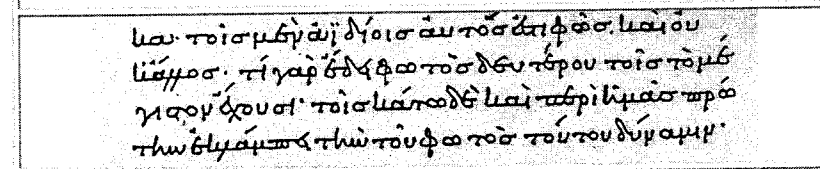 και τοῖς μὲν ἀϊδίοις ἀυτὸς ἐστὶ φῶς. καὶ οὐ
κ ἄλλος· τί γὰρ ἔδει φωτὸς δευτέρου τοῖς τὸ μέ
γιστον ἔχουσι· τοῖς κάτω δὲ καὶ περὶ ἡμᾶς πρώ
την ἐλλάμπει τὴν τοῦ φωτὸς τούτου δύναμιν·